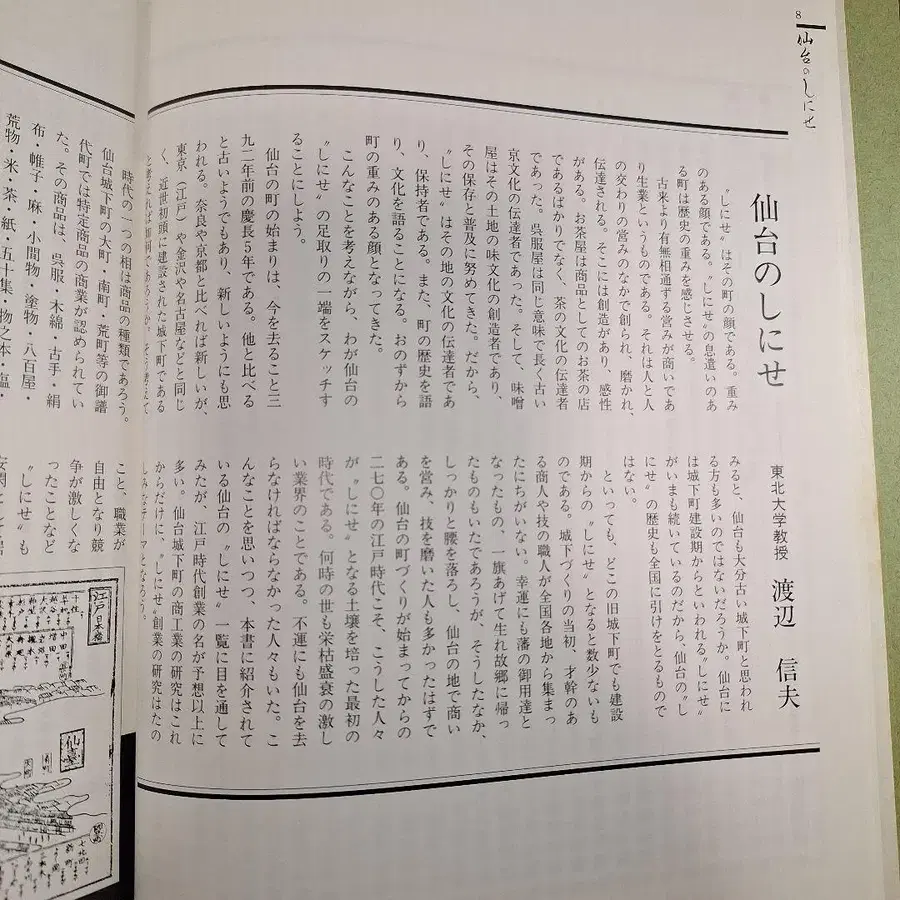 8
仙台のしにせ
仙台のしにせ
東北大学教授 渡辺 信夫
〝しにせ〟はその町の顔である。重み
のある顔である。〝しにせ〟の息遣いのあ
る町は歴史の重みを感じさせる。
古来より有無相通ずる営みが商いであ
り生業というものである。それは人と人
の交わりの営みのなかで創られ、磨かれ、
伝達される。そこには創造があり、感性
がある。お茶屋は商品としてのお茶の店
であるばかりでなく、茶の文化の伝達者
であった。呉服屋は同じ意味で長く古い
京文化の伝達者であった。そして、味噌
屋はその土地の味文化の創造者であり、
その保存と普及に努めてきた。だから、
〝しにせ〟はその地の文化の伝達者であ
り、保持者である。また、町の歴史を語
り、文化を語ることになる。おのずから
町の重みのある顔となってきた。
こんなことを考えながら、わが仙台の
〝しにせ〟の足取りの一端をスケッチす
ることにしよう。
仙台の町の始まりは、今を去ること三
九二年前の慶長5年である。他と比べる
と古いようでもあり、新しいようにも思
われる。奈良や京都と比べれば新しいが、
東京（江戸）や金沢や名古屋などと同じ
く、近世初頭に建設された城下町である
と考えれば如何であろうか。そう考えて
みると、仙台も大分古い城下町と思われ
る方も多いのではないだろうか。仙台に
は城下町建設期からといわれる〝しにせ〟
がいまも続いているのだから仙台の〝し
にせ〟の歴史も全国に引けをとるもので
はない。
といっても、どこの旧城下町でも建設
期からの〝しにせ〟となると数少ないも
のである。城下づくりの当初、才幹のあ
る商人や技の職人が全国各地から集まっ
たにちがいない。幸運にも藩の御用達と
なったもの、一旗あげて生れ故郷に帰っ
たものもいたであろうが、そうしたなか、
しっかりと腰を落ろし、仙台の地で商い
を営み、技を磨いた人も多かったはずで
ある。仙台の町づくりが始まってからの
二七〇年の江戸時代こそ、こうした人々
が〝しにせ〟となる土壌を培った最初の
時代である。何時の世も栄枯盛衰の激し
い業界のことである。不運にも仙台を去
らなければならなかった人々もいた。こ
んなことを思いつつ、本書に紹介されて
いる仙台の〝しにせ〟一覧に目を通して
みたが、江戸時代創業の名が予想以上に
多い。仙台城下町の商工業の研究はこれ
からだけに、〝しにせ〟創業の研究はたの
しみなテーマとなろう。
時代の一つの相は商品の種類であろう。
仙台城下町の大町・南町・荒町等の御譜
代町では特定商品の商業が認められてい
た。その商品は、呉服・木綿・古手・絹
布・帷子・麻・小間物・塗物・八百屋・
荒物・米・茶・紙・五十集・物之本・塩・
こと、職業が
自由となり競
争が激しくな
ったことなど
〝しにせ〟も
江戸日本橋
仙臺